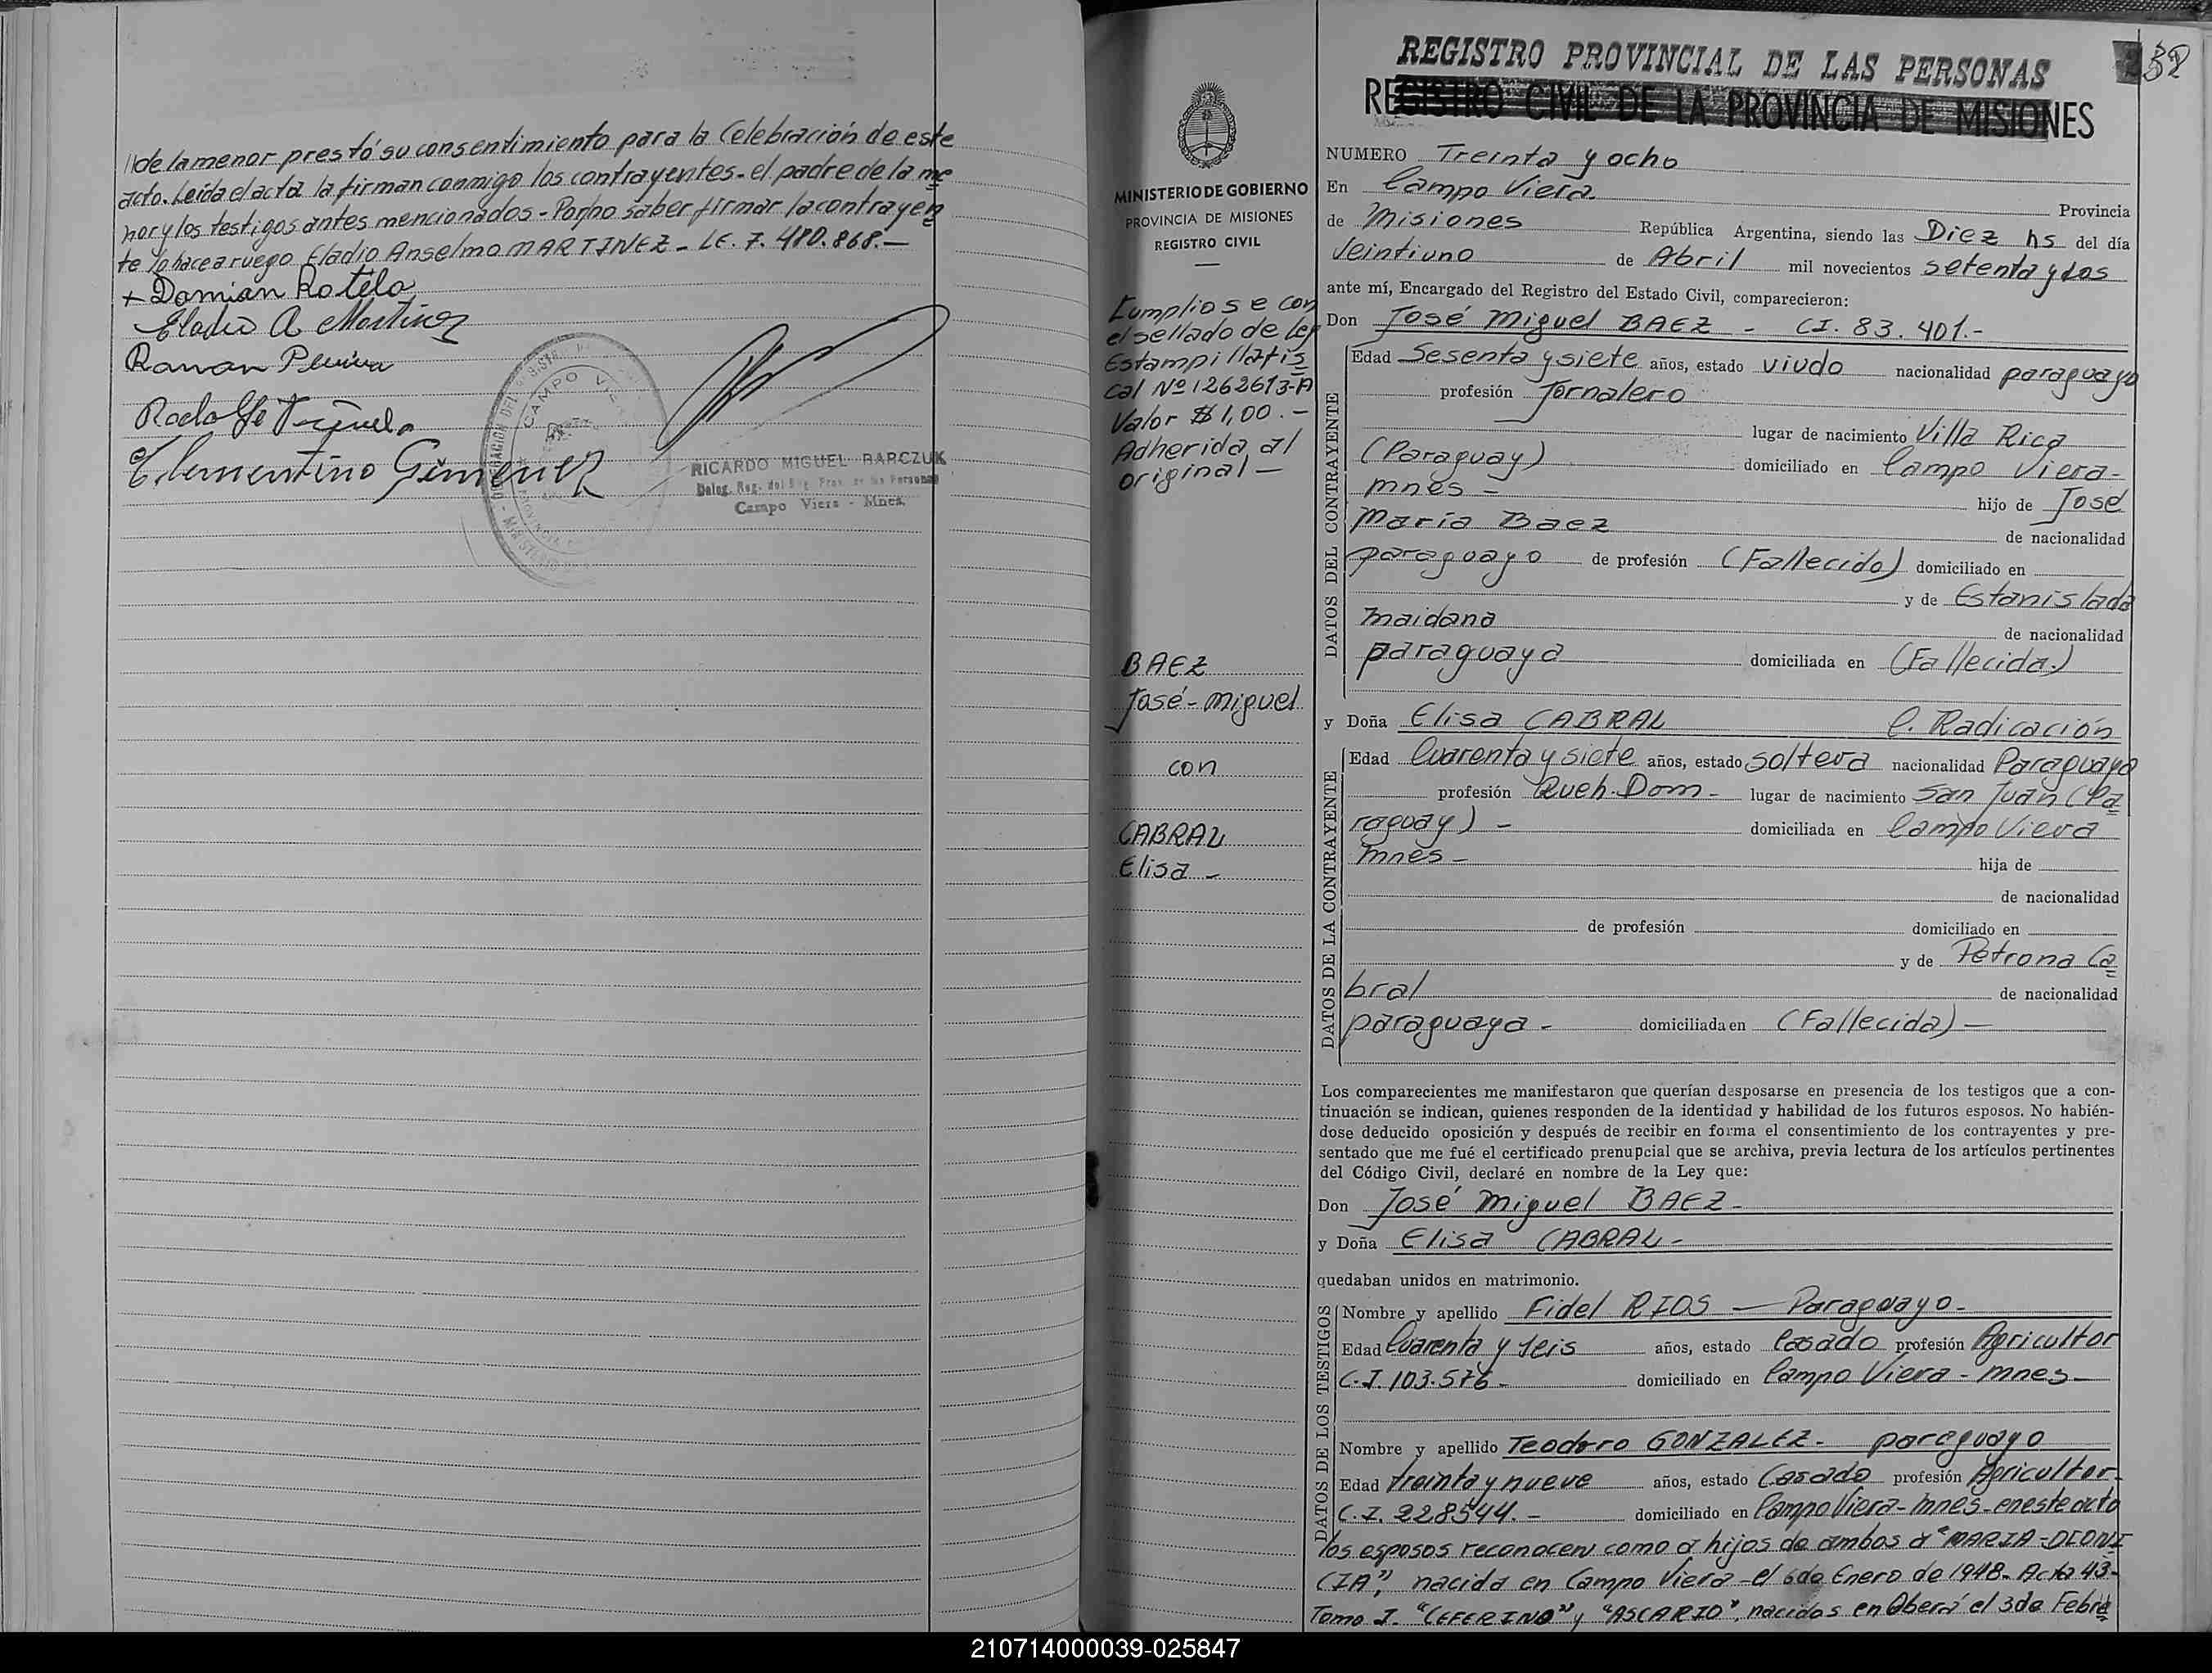 //de la menor prestó su consentimiento para la Celebración de este
acto. Leída el acta la firman conmigo los contrayentes - el padre de la me
nor y los testigos antes mencionados - Por no saber firmar la contrayen
te lo hace a ruego Eladio Anselmo MARTINEZ - LE. 7. 480.868.—
+ Damian Rotela
Eladio A Martinez
Ramon
Rodolfo
Clementino Gimenez
CAMPO VIERA
RICARDO MIGUEL BARCZUK
Deleg. Reg. del Reg. Prov. de las Personas
Campo Viera - Mnes.
MINISTERIO DE GOBIERNO
PROVINCIA DE MISIONES
REGISTRO CIVIL
Cumpliose con
el sellado de Ley
Estampilla fis
cal Nº 1262613-A
Valor $ 1,00.-
Adherida al
original —
BAEZ
José - Miguel
con
CABRAL
Elisa -
REGISTRO PROVINCIAL DE LAS PERSONAS
REGISTRO CIVIL DE LA PROVINCIA DE MISIONES
NUMERO Treinta y ocho
En Campo Viera. Provincia
de Misiones República Argentina, siendo las Diez hs del día
Veintiuno de Abril mil novecientos setenta y dos
ante mí, Encargado del Registro del Estado Civil, comparecieron:
Don José Miguel BAEZ - CI. 83.401.-
DATOS DEL CONTRAYENTE
Edad Sesenta y siete años, estado viudo nacionalidad paraguayo
profesión Jornalero
lugar de nacimiento Villa Rica
(Paraguay) domiciliado en Campo Viera-
mnes - hijo de José
María Baez de nacionalidad
paraguayo de profesión (Fallecido) domiciliado en
y de Estanislada
maidana de nacionalidad
paraguaya domiciliada en (Fallecida.)
y Doña Elisa CABRAL C. Radicación
DATOS DE LA CONTRAYENTE
Edad Cuarenta y siete años, estado soltera nacionalidad Paraguaya
profesión Queh. Dom - lugar de nacimiento San Juan (Pa
raguay) - domiciliada en Campo Viera
mnes - hija de
de nacionalidad
de profesión domiciliado en
y de Petrona Ca
bral de nacionalidad
paraguaya - domiciliada en (Fallecida) —
Los comparecientes me manifestaron que querían desposarse en presencia de los testigos que a con-
tinuación se indican, quienes responden de la identidad y habilidad de los futuros esposos. No habién-
dose deducido oposición y después de recibir en forma el consentimiento de los contrayentes y pre-
sentado que me fué el certificado prenupcial que se archiva, previa lectura de los artículos pertinentes
del Código Civil, declaré en nombre de la Ley que:
Don José Miguel BAEZ -
y Doña Elisa CABRAL -
quedaban unidos en matrimonio.
DATOS DE LOS TESTIGOS
Nombre y apellido Fidel RIOS — Paraguayo -
Edad Cuarenta y seis años, estado Casado profesión Agricultor
C.I. 103.576 - domiciliado en Campo Viera - mnes -
Nombre y apellido Teodoro GONZALEZ - paraguayo
Edad treinta y nueve años, estado Casado profesión Agricultor -
C.I. 228544. - domiciliado en Campo Viera - mnes - en este acto
los esposos reconocen como a hijos de ambos a "MARIA - DIONI
CIA", nacida en Campo Viera - el 6 de Enero de 1948 - Acta 43 -
Tomo I. "CEFERINO" y "ASCARIO", nacidos en Oberá el 3 de Febre
210714000039-025847